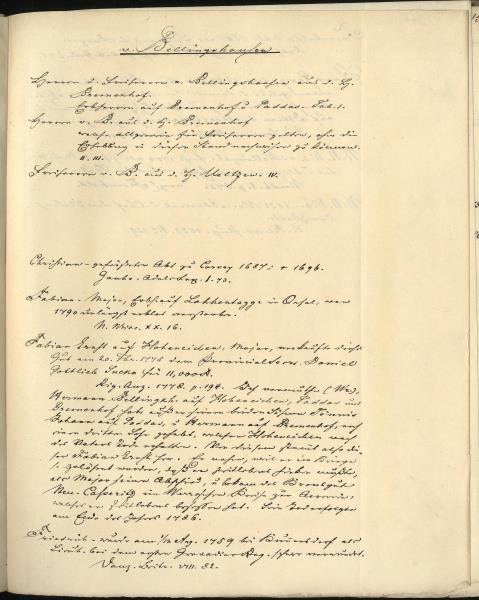 v. Bellingshausen
Herren u. Freiherren v. Bellingshausen aus d. H.
Bremenhof.
Erbherren auf Bremenhof u. Paddas. Tab. I.
Herren v. B. aus d. H. Bremenhof
welche allgemein für Freiherren gelten, ohne die
Erhebung in diesen Stand nachweisen zu können.
II. III.
Freiherren v. B. aus d. H.
Christian - gefürsteter Abt zu Corvey 1687; † 1696.
Gauhe. Adels Lex. I. 73.
Fabian - Major, Erbh. auf Lahhentagge in Oesel, war
1790 unlängst erblos verstorben.
N. Misc. XX. 16.
Fabian Ernst auf Hoheneichen, Major, verkaufte dieses
Gut am 20. 1778 dem Provincial Secr. Daniel
Gottlieb für 11,000 R.
Rig. Anz. 1778. p. 194. Ich vermuthe
Hermann Bellingsh. auf Hoheneichen, Paddas und
Bremenhof hat außer seinen beiden Söhnen
Johann auf Paddas, u. Hermann auf Bremenhof, noch
einen dritten Sohn gehabt, welcher Hoheneichen nach
des Vaters Tode erhalten. Von diesem stammt also die-
ser Fabian Ernst her. Er nahm, weil er im Kriege
als Major seinen Abschied, u. bekam das Kronsgut
Neu- im Kreise zur Arrende,
besessen hat. Sein Tod erfolgte
am Ende des Jahres 1786.
Friedrich - wurde am Aug. 1759 bei Kunersdorf als
Lieut. bei dem ersten Grenadier Reg. schwer verwundet.
Danz. Beitr. VIII. 82.